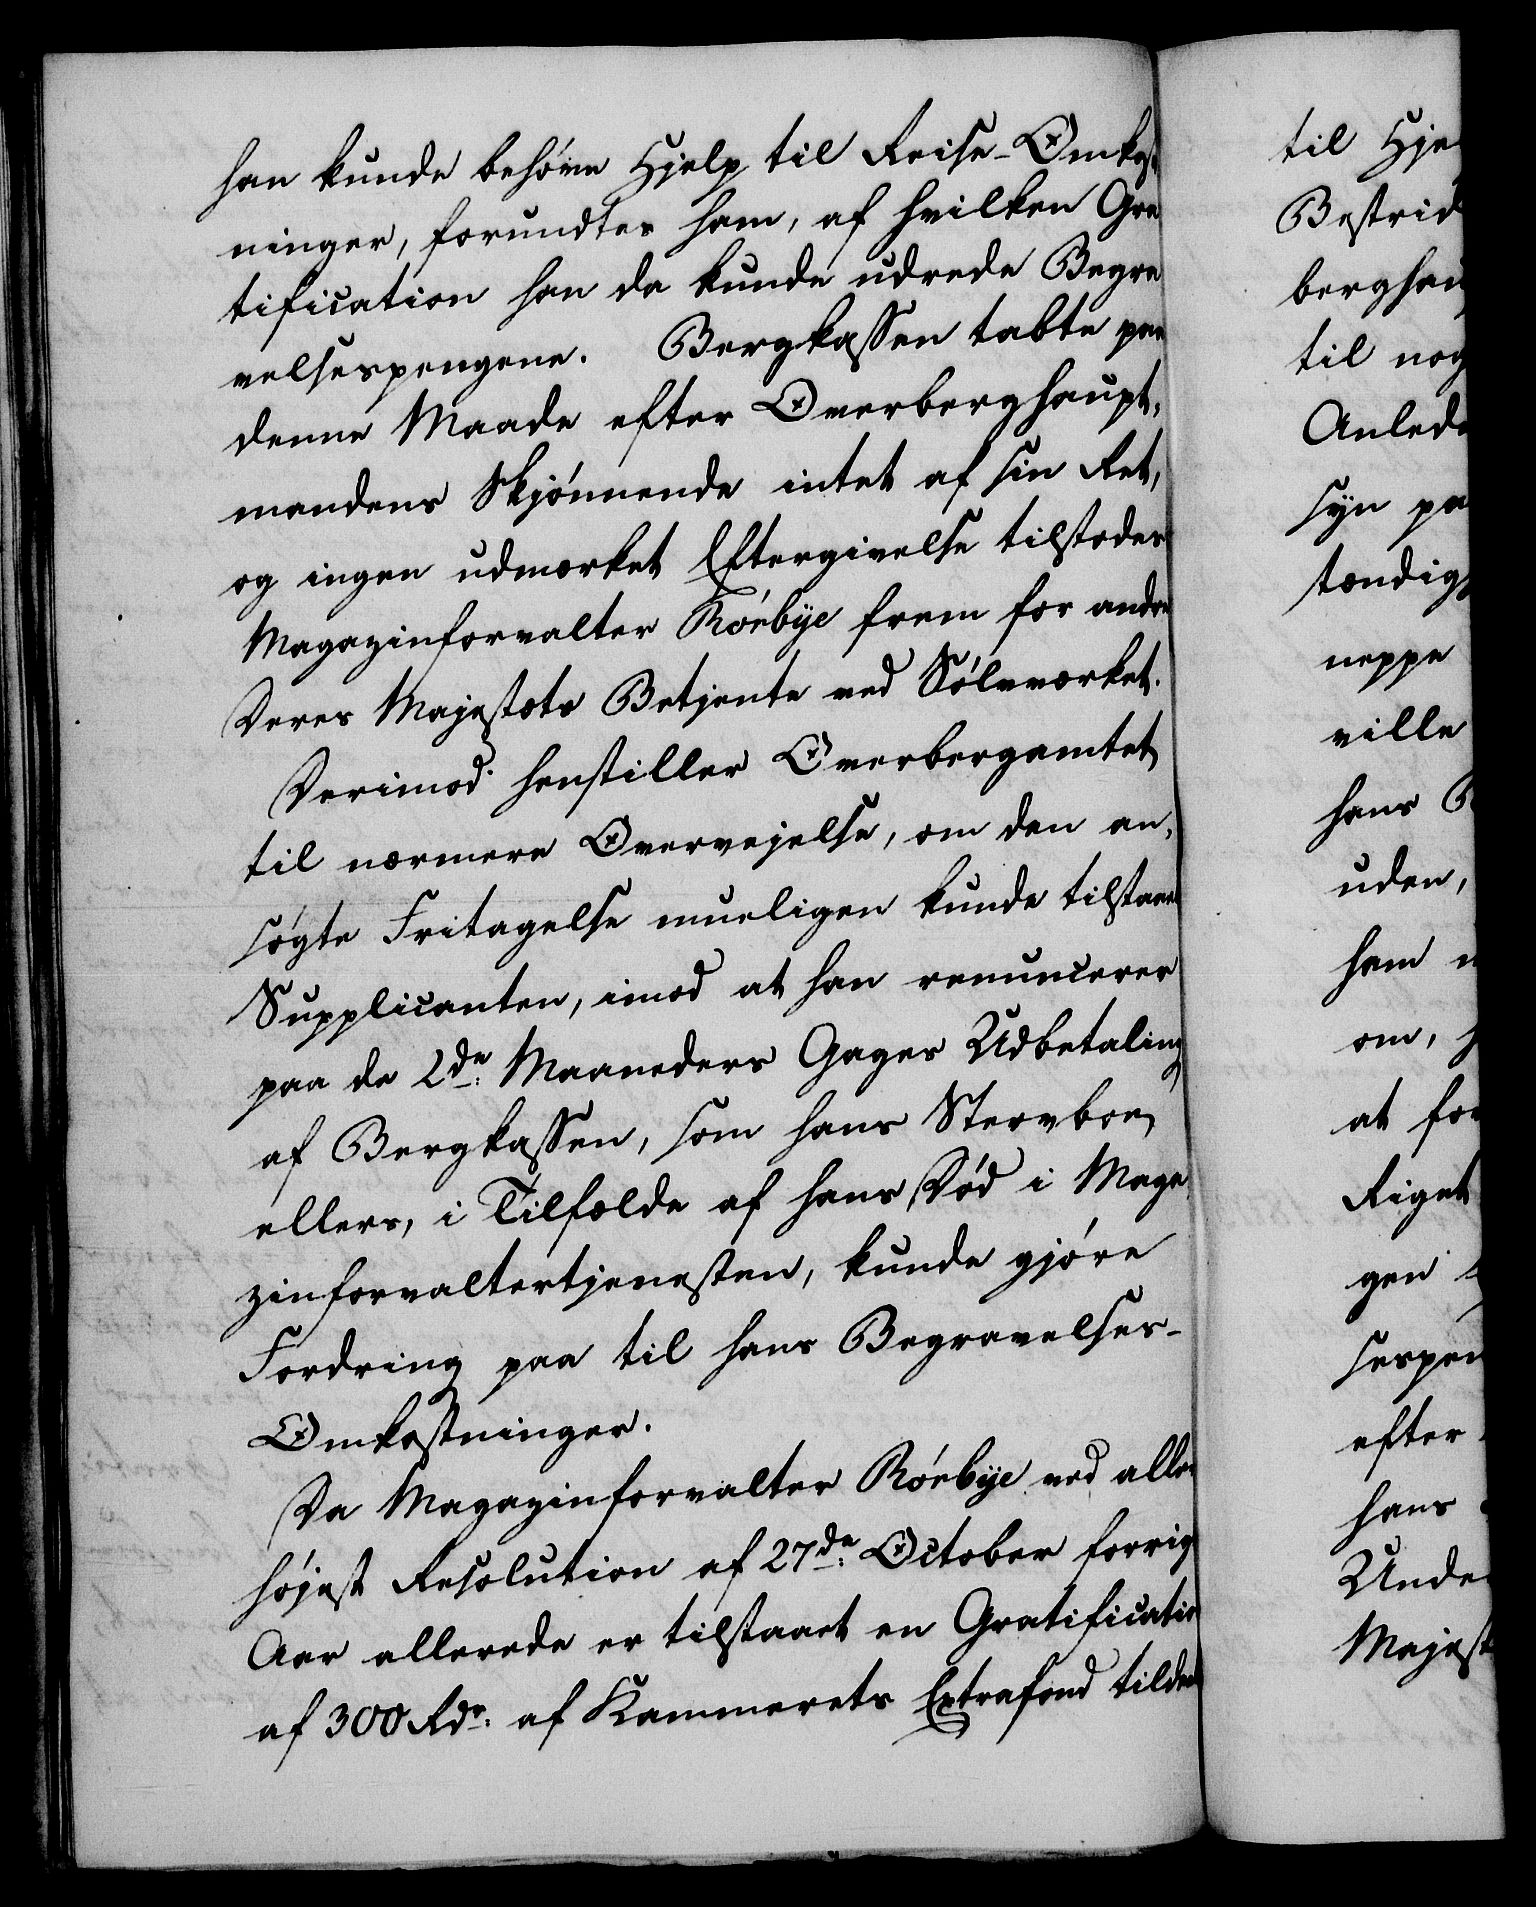 han kunde behøve Hjelp til Reise-Omkost
ninger, forundtes ham, af hvilken Gra
tification han da kunde udrede Begra
velsespengene. Bergkassen tabte paa
denne Maade efter Overberghaupt,
mandens Skjønnende intet af sin Ret,
og ingen udmærket Eftergivelse tilstodes
Magazinforvalter Rörbÿe frem for andre
Deres Majestæts Betjente ved Sølvværket.
Derimod henstiller Overbergamtet
til nærmere Overvejelse, om den an,
søgte Fritagelse mueligen kunde tilstaaes
Supplicanten, imod at han renuncerer
paa de 2de: Maaneders Gages Udbetaling
af Bergkassen, som hans Stervboe,
ellers, i Tilfælde af hans Død i Maga
zinforvaltertjenesten, kunde gjøre
Fordring paa til hans Begravelses-
Omkostninger.
Da Magazinforvalter Rörbÿe ved aller
højest Resolution af 27de: October forrig
Aar allerede er tilstaaet en Gratificatio
af 300 Rdr: af Kammerets Extrafond tildeel
til Hje
Bestrid
berghau
til nog
Anled
syn pa
stændig
neppe
ville
hans
uden,
ham
om,
at for
Riget
gen
sespen
efter
hans
Unde
Majest